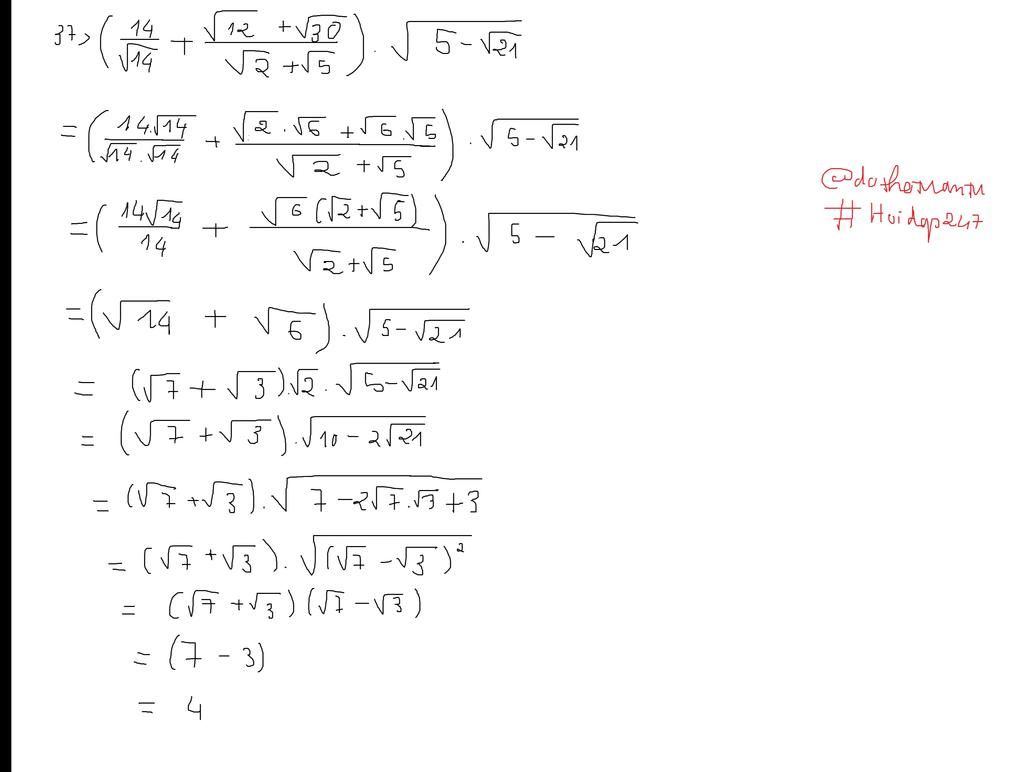 37> (14/√14 + (√12 + √30)/(√2 + √5)) . √(5 - √21)
= (14.√14/(√14.√14) + (√2 . √6 + √6 . √5)/(√2 + √5)) . √(5 - √21)
= (14√14/14 + √6(√2 + √5)/(√2 + √5)) . √(5 - √21)
= (√14 + √6) . √(5 - √21)
= (√7 + √3).√2 . √(5 - √21)
= (√7 + √3).√(10 - 2√21)
= (√7 + √3).√(7 - 2√7.√3 + 3)
= (√7 + √3). √((√7 - √3)²)
= (√7 + √3)(√7 - √3)
= (7 - 3)
= 4
#Hoidap247